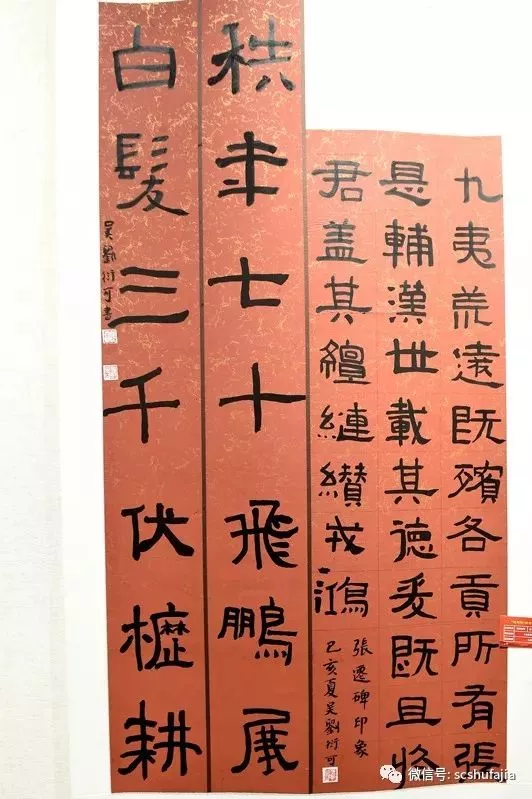 九夷荒遠既殯各貢所有張
是輔漢世載其德爰既且於
君盖其繵縺纘戎鴻
張遷碑印象
己亥夏吴劉衍可
秩年七十飛鵬展
白髮三千伏櫪耕
吴劉衍可書
微信号: scshufajia